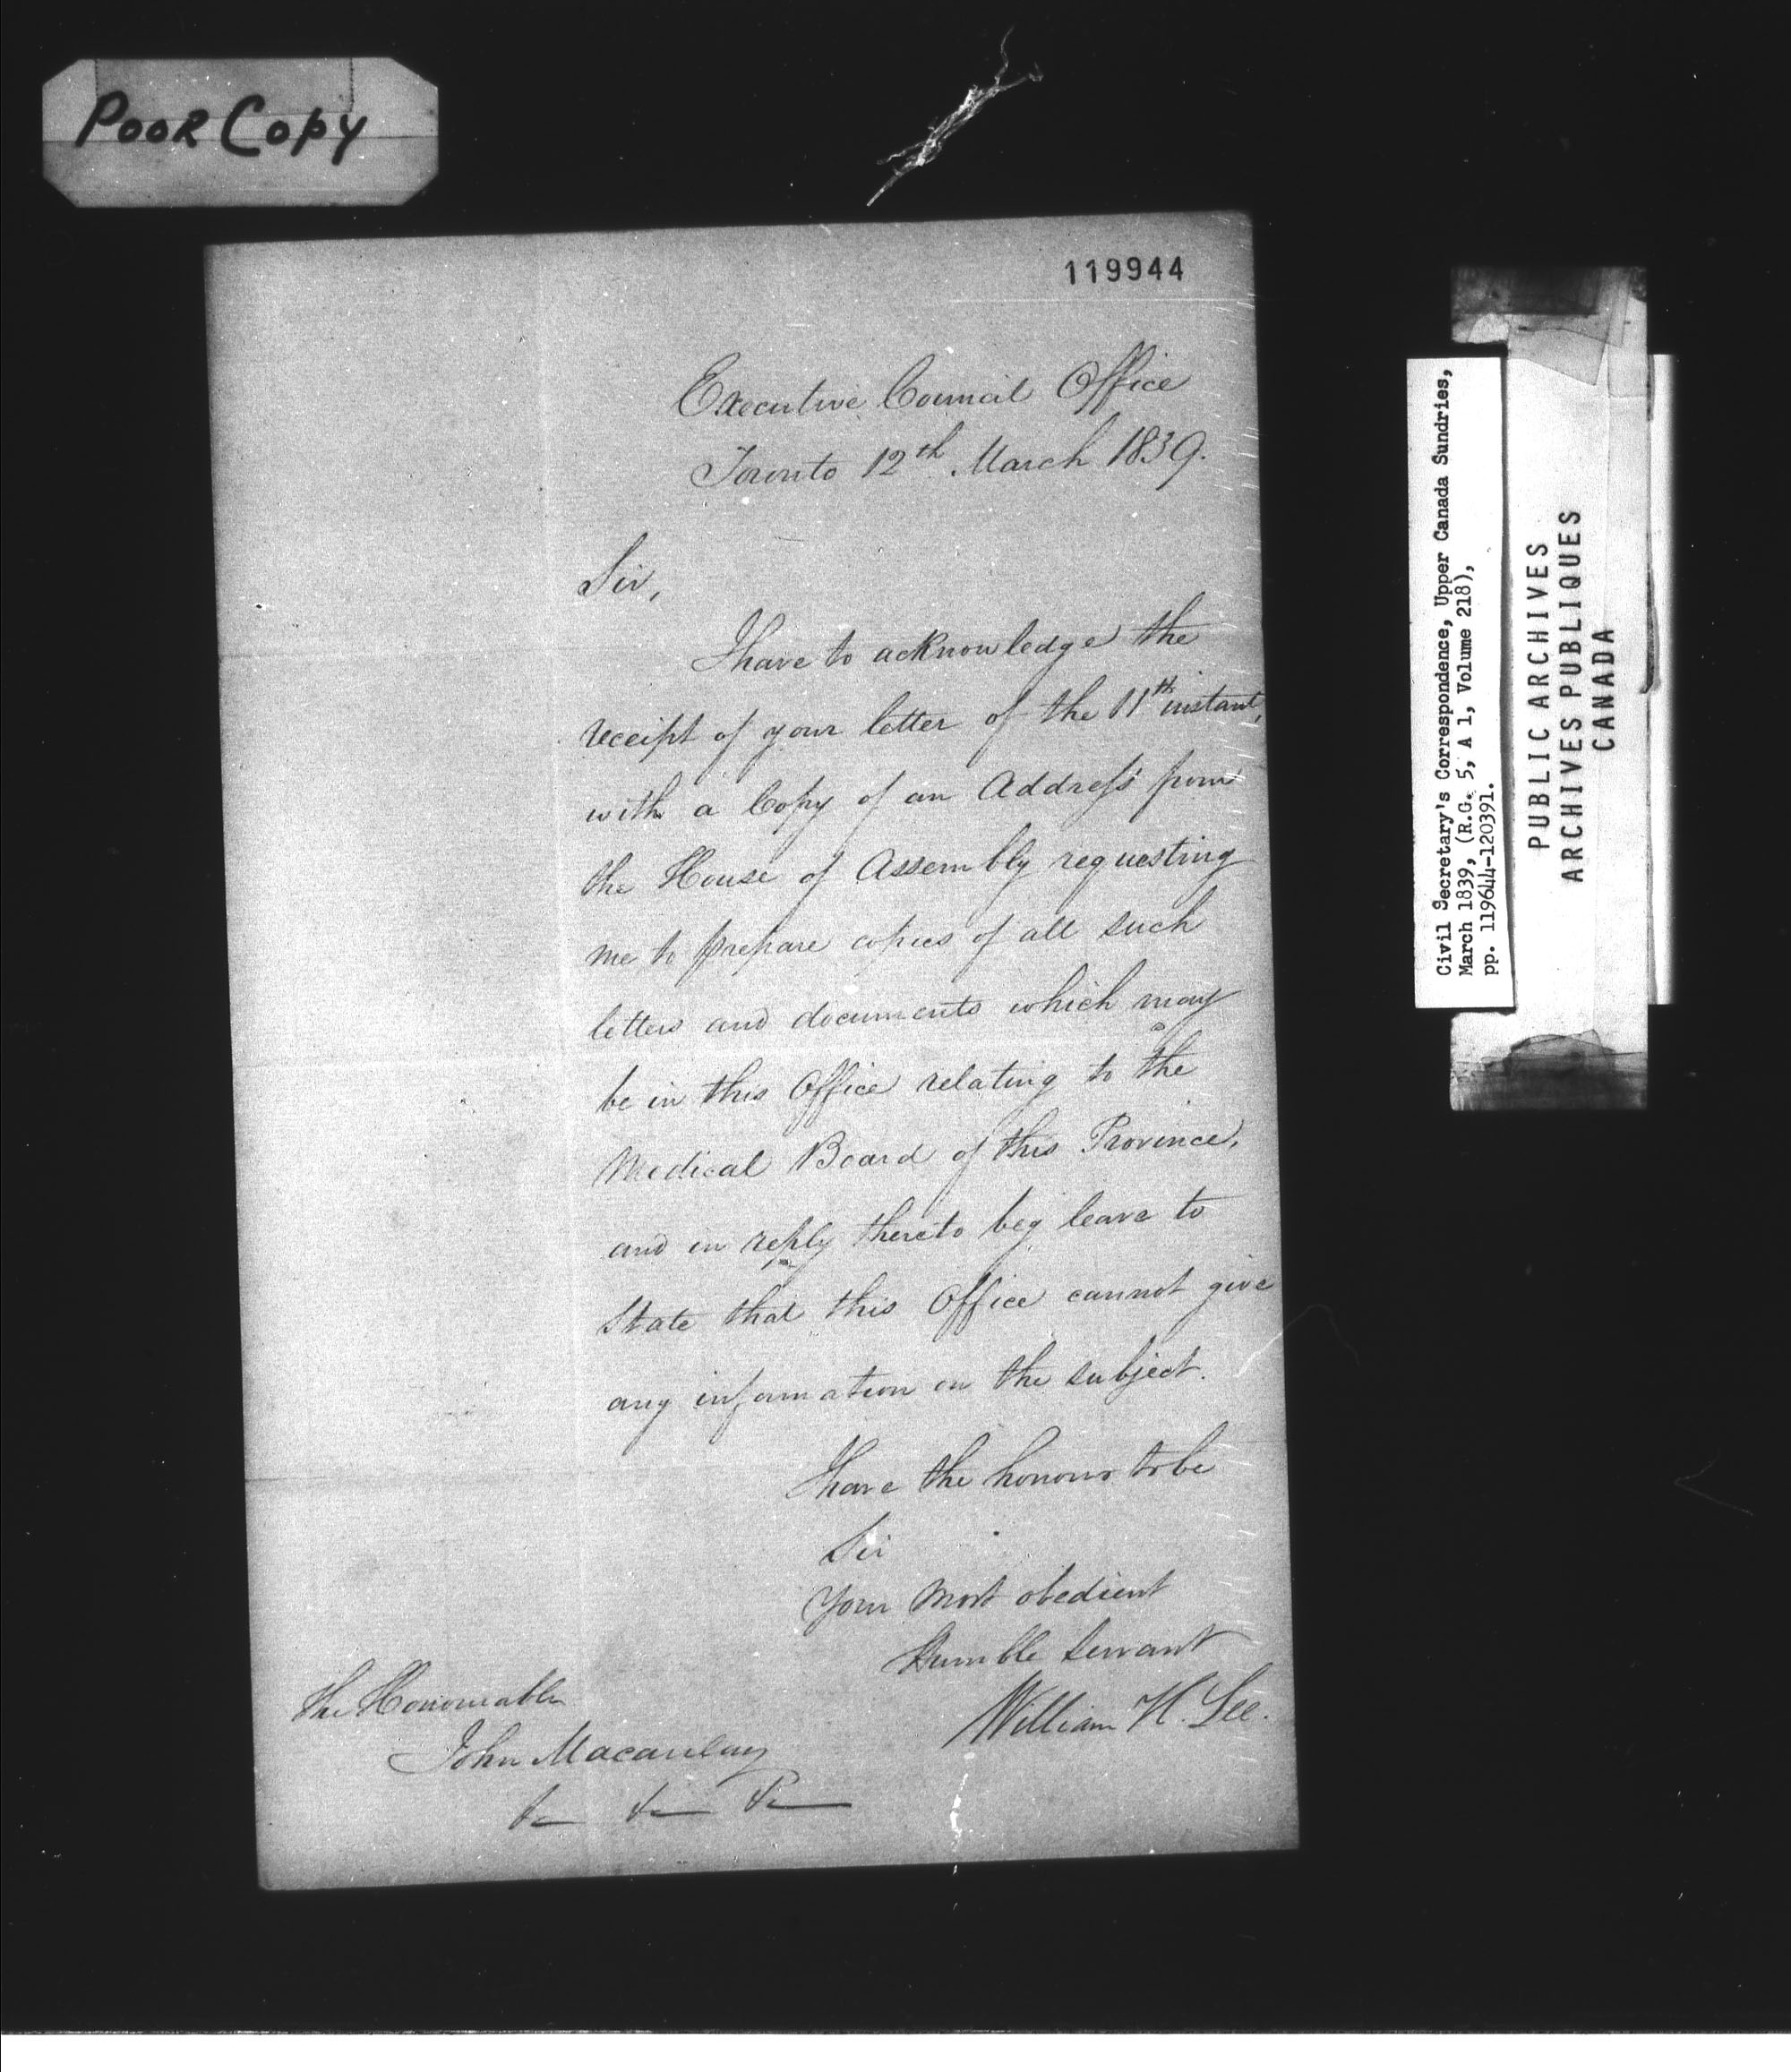 Poor Copy
119944
Executive Council Office
Toronto 12th March 1839.
Sir,
I have to acknowledge the
receipt of your letter of the 11th instant,
with a Copy of an Address from
the House of Assembly requesting
me to prepare copies of all such
letters and documents which may
be in this Office relating to the
Medical Board of this Province,
and in reply thereto beg leave to
state that this Office cannot give
any information on the subject.
I have the honour to be
Sir
Your most obedient
humble servant
William H. Lee.
The Honourable
John Macaulay
&c &c &c
Civil Secretary's Correspondence, Upper Canada Sundries,
March 1839, (R.G. 5, A 1, Volume 218),
pp. 119644-120391.
PUBLIC ARCHIVES
ARCHIVES PUBLIQUES
CANADA